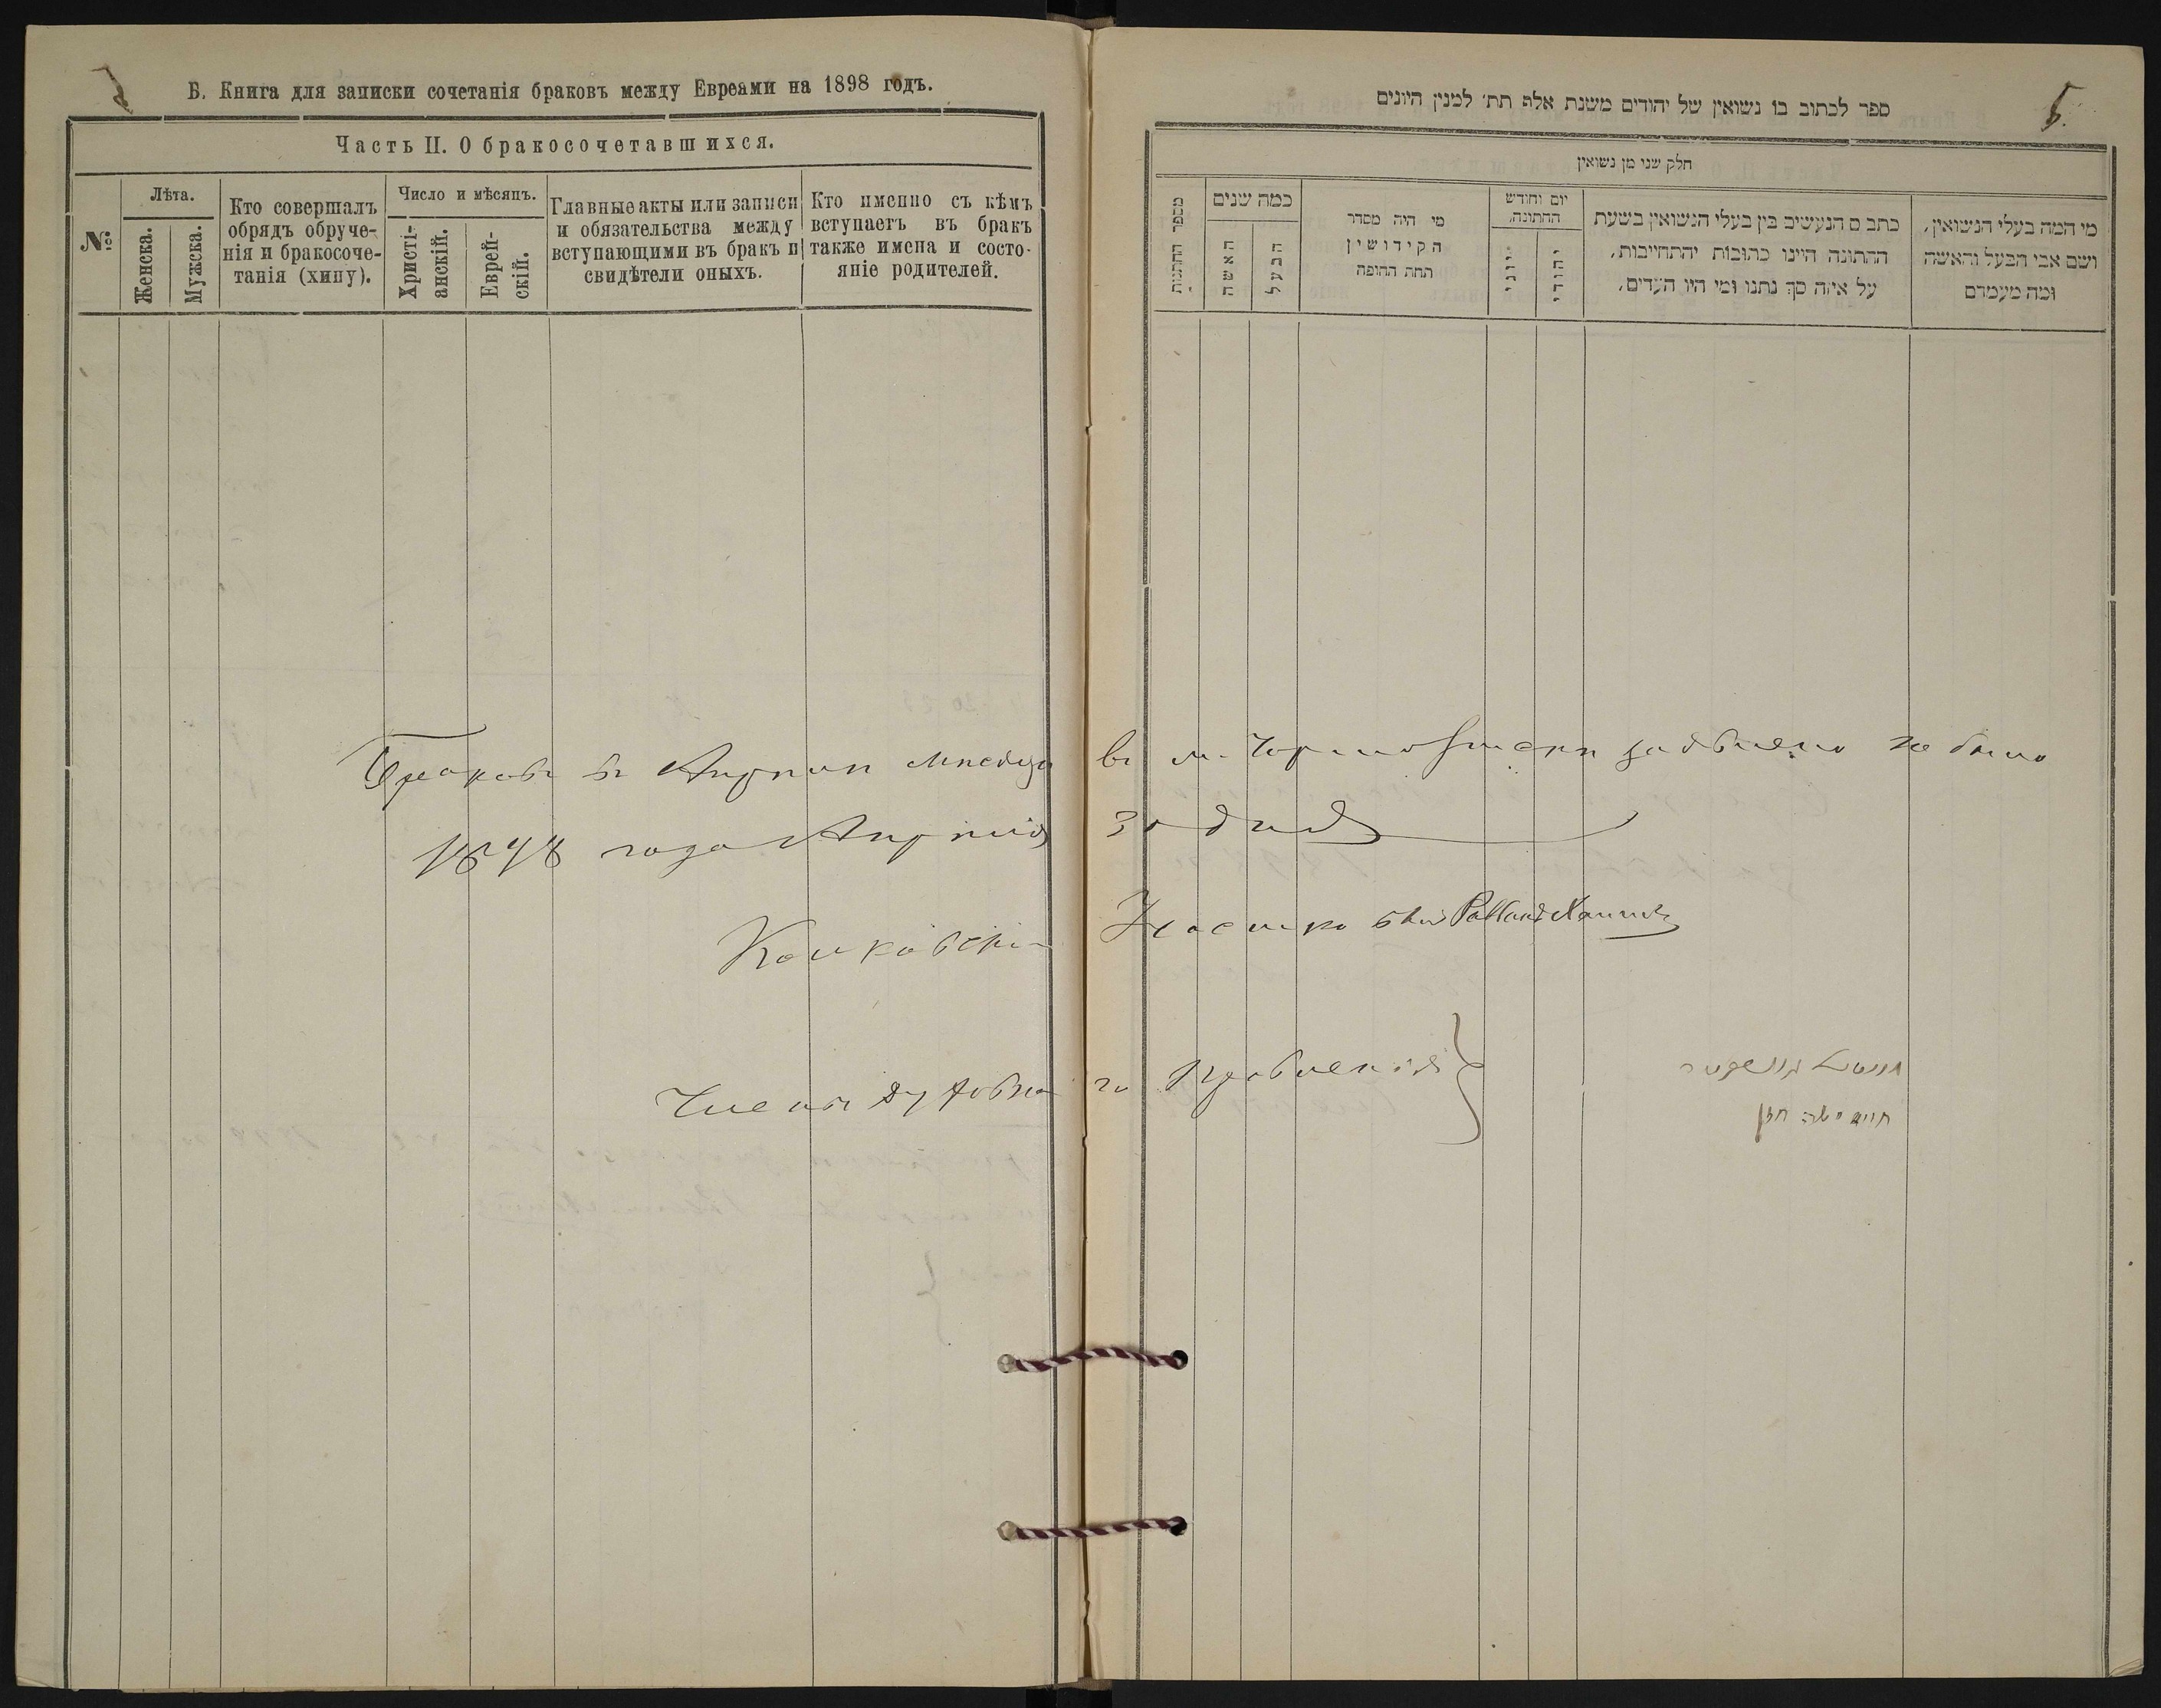 Б. Книга для записки сочетанія браковъ между Евреами на 1898 годъ.
Часть II. О бракосочетавшихся.
№
Лѣта.
Женска.
Мужска.
Кто совершалъ
обрядъ обруче-
нія и бракосоче-
танія (хипу).
Число и мѣсяцъ.
Христі-
анскій.
Еврей-
скій.
Главные акты или записи
и обязательства между
вступающими въ бракъ и
свидѣтели оныхъ.
Кто именно съ кѣмъ
вступаетъ въ бракъ
также имена и состо-
яніе родителей.
ספר לכתוב בו נשואין של יהודים משנת אלף תת׳ למנין היונים
5.
חלק שני מן נשואין
מספר החתונות
כמה שנים
האשה
הבעל
מי היה מסדר
הקידושין
תחת החיפה
יום וחודש
החתונה,
יווני
יהודי
כתב ם הנעשיב בין בעלי הנשואין בשעת
החתונה היינו כתובות יהתחייבות,
על איזה סך נתנו ומי היו העדים,
מי המה בעלי הנשואין,
ושם אבי הבעל והאשה
ומה מעמדם
Браковъ въ Апрѣлѣ мѣсяцѣ въ м. заявлено не было
1898 года Апрѣля 30 дня
Члены Духовнаго Правленія